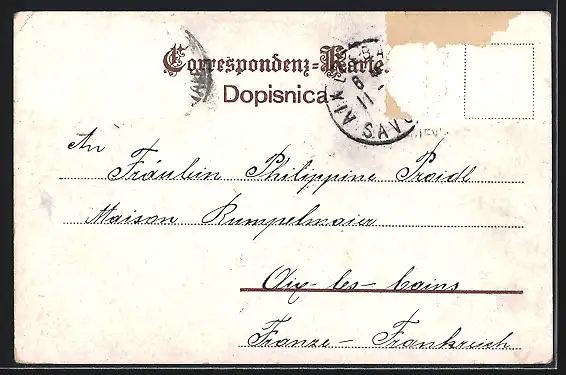 Correspondenz-Karte.
Dopisnica
SAVO
An
Fräulein Philippine Proidl
Maison Rumpelmaier
Aix-les-bains
Franze- Frankreich